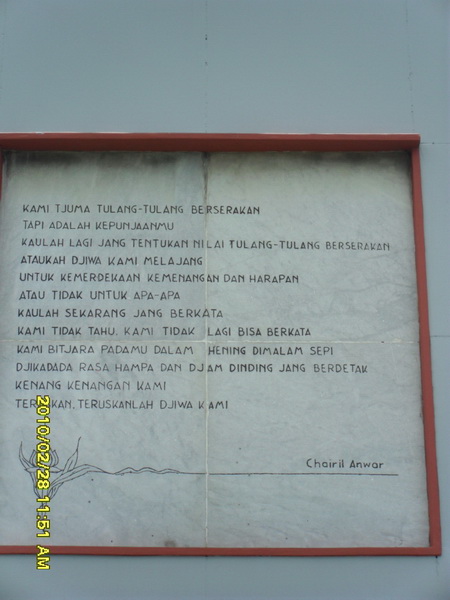 KAMI TJUMA TULANG-TULANG BERSERAKAN
TAPI ADALAH KEPUNJAANMU
KAULAH LAGI JANG TENTUKAN NILAI TULANG-TULANG BERSERAKAN
ATAUKAH DJIWA KAMI MELAJANG
UNTUK KEMERDEKAAN KEMENANGAN DAN HARAPAN
ATAU TIDAK UNTUK APA-APA
KAULAH SEKARANG JANG BERKATA
KAMI TIDAK TAHU. KAMI TIDAK LAGI BISA BERKATA
KAMI BITJARA PADAMU DALAM HENING DIMALAM SEPI
DJIKADADA RASA HAMPA DAN DJAM DINDING JANG BERDETAK
KENANG KENANGAN KAMI
TERUSKAN, TERUSKANLAH DJIWA KAMI
Chairil Anwar
2010/02/28 11:51 AM